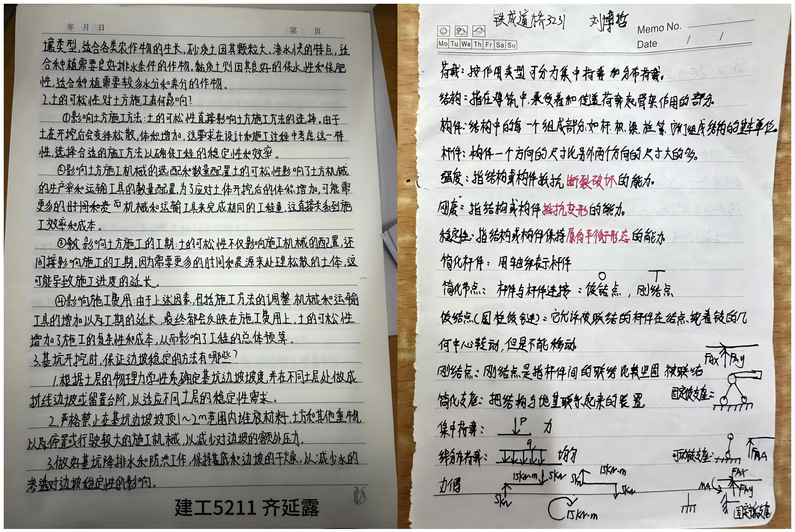 年 月 日
第 页
壤类型,适合各类农作物的生长,砂质土因其颗粒大、渗水快的特点,适
合种植需要良好排水条件的作物,黏质土则因其良好的保水性和保肥
性,适合种植需要较多水分和养分的作物。
2.土的可松性对土方施工有何影响?
①影响土方施工方法:土的可松性直接影响土方施工方法的选择,由于
土在开挖后会变得松散,体积增加,这要求在设计和施工过程中考虑这一特
性,选择合适的施工方法以确保工程的稳定性和效率。
②影响土方施工机械的选配和数量配置土的可松性影响了土方机械
的生产率和运输工具的数量配置,为了应对土体开挖后的体积增加,可能需
更多的时间和资 机械和运输工具来完成相同的工程量,这直接关系到施
工效率和成本。
③影响土方施工的工期:土的可松性不仅影响施工机械的配置,还
间接影响施工的工期,因为需要更多的时间和资源来处理松散的土体,这
可能导致施工进度的延长。
④影响施工费用:由于上述因素,包括施工方法的调整、机械和运输
工具的增加以及工期的延长,最终都会反映在施工费用上,土的可松性
增加了施工的复杂性和成本,从而影响了工程的总体预算。
3.基坑开挖时,保证边坡稳定的方法有哪些?
1.根据土层的物理力学性质确定基坑边坡坡度,并在不同土层处做成
折线边坡或留置台阶,以适应不同土层的稳定性需求。
2.严格禁止在基坑边坡坡顶1~2m范围内堆放材料、土方和其他重物
以及停置或行驶较大的施工机械,以减少对边坡的额外压力。
3.做好基坑降排水和防洪工作,保持基底和边坡的干燥,以减少水的
渗透对边坡稳定性的影响。
建工5211 齐延露
铁成道桥3231 刘博哲
Memo No.
Mo Tu We Th Fr Sa Su
Date / /
荷载:按作用类型可分为集中荷载和分布荷载。
结构:指在建筑中,承受着和传递荷载起骨架作用的部分。
构件:结构中的每一个组成部分,如杆、板、梁、柱等,它们组成结构的基本单位。
杆件:构件一个方向的尺寸比另外两个方向的尺寸大的多。
强度:指结构或构件抵抗断裂破坏的能力。
刚度:指结构或构件抵抗变形的能力。
稳定性:指结构或构件保持原有平衡形态的能力
简化杆件:用轴线表示杆件
简化节点:杆件与杆件连接:铰结点,刚结点
铰结点(圆柱铰链):它允许被联结的杆件在结点绕着铰的几
何中心转动,但是不能移动
FAX FAy
刚结点:刚结点是指杆件间的联结比较坚固 被联结
简化支座:把结构与地基联系起来的装置 固定铰支座:
集中荷载: P 力
线分布荷载: q 均匀 可动铰支座: FA
力偶 5kN 15kN·m 15kN·m 5kN 15kN·m MA FAX FAy
固定端支座